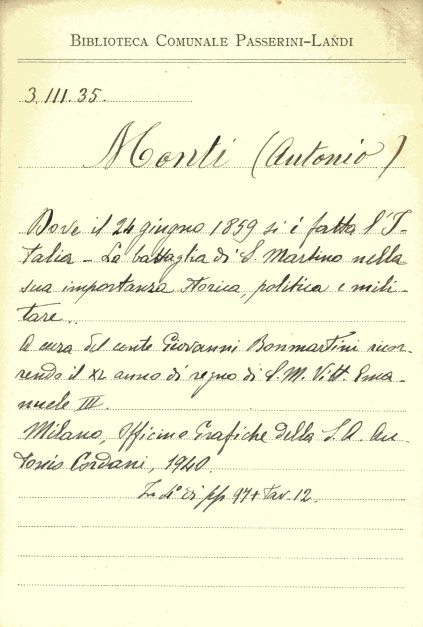 BIBLIOTECA COMUNALE PASSERINI-LANDI
3.III.35.
Monti (Antonio)
Dove il 24 giugno 1859 si è fatta l'I-
talia - La battaglia di S. Martino nella
sua importanza storica, politica e mili-
tare.
A cura del conte Giovanni Bonmartini ricor-
rendo il XL anno di regno di S. M. Vitt. Ema-
nuele III.
Milano, Officine Grafiche della S. A. An-
tonio Cordani, 1940.
di pp 97 + tav. 12.